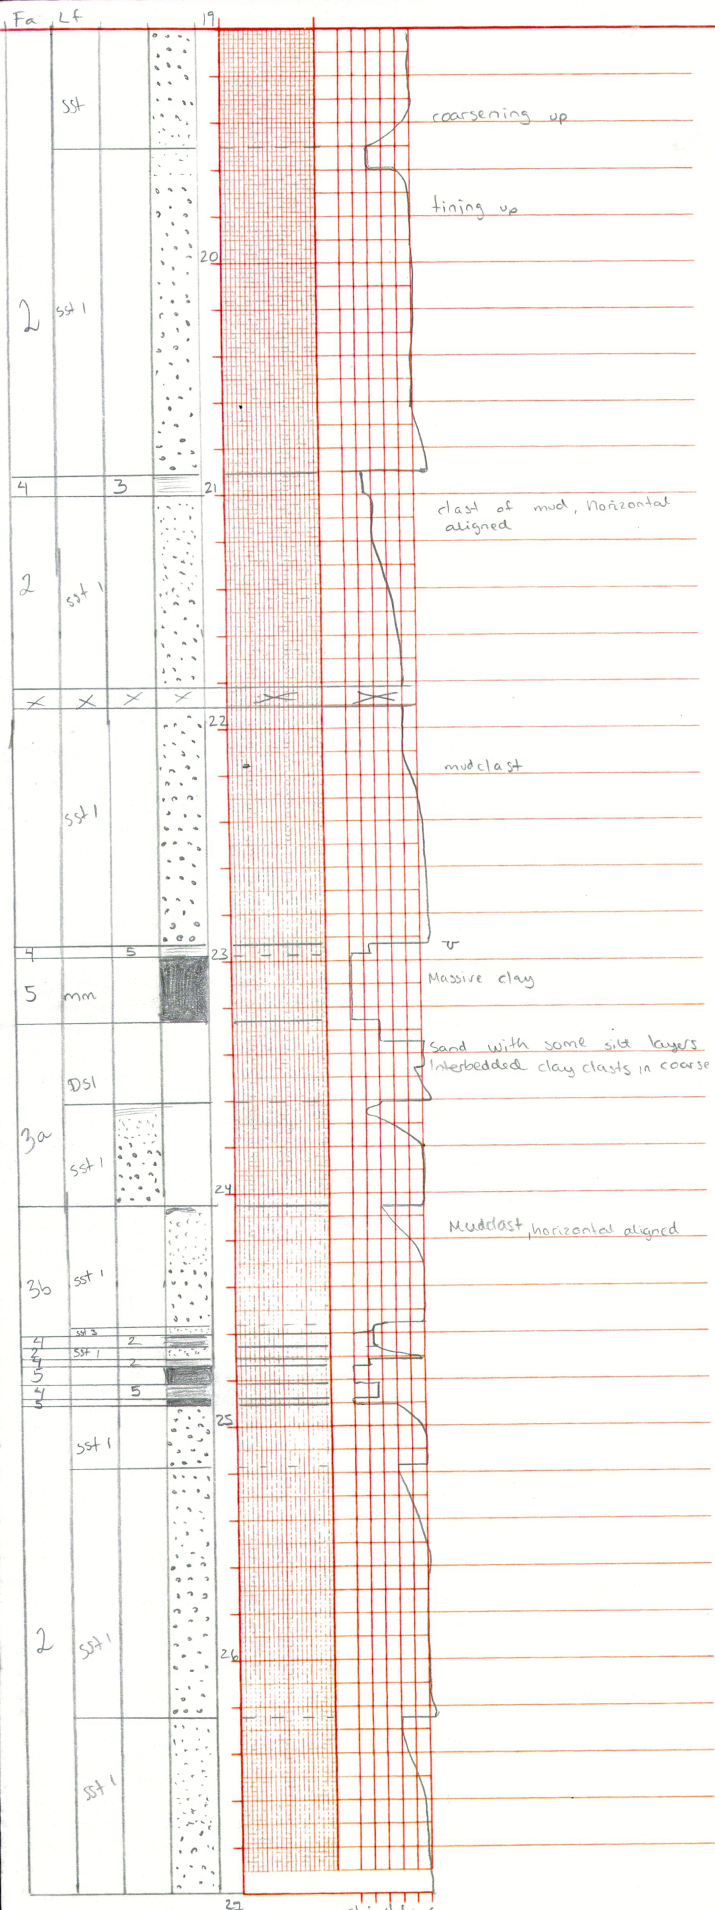 Fa Lf 19
sst
coarsening up
fining up
20
2 sst 1
4 3 21
clast of mud, horizontal
aligned
2 sst 1
X X X X X X
22
mudclast
sst 1
4 5 23
Massive clay
5 mm
Sand with some silt layers
Interbedded clay clasts in coarse
DSI
3a
sst 1
24
Mudclast, horizontal aligned
3b sst 1
sst 3
4 2
2 sst 1
4 2
5
4 5
5
25
sst 1
2 sst 1
26
sst 1